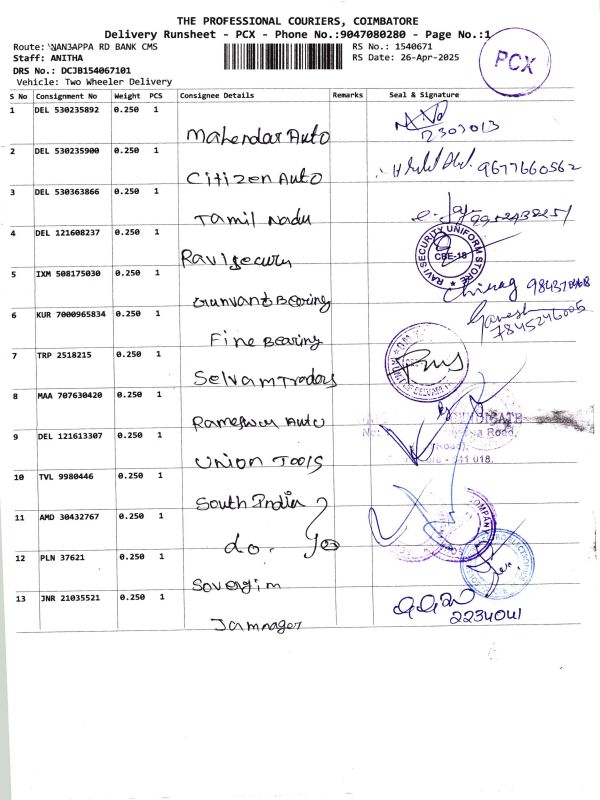 THE PROFESSIONAL COURIERS, COIMBATORE
Delivery Runsheet - PCX - Phone No.:9047080280 - Page No.:1
Route: \NANJAPPA RD BANK CMS
RS No.: 1540671
Staff: ANITHA
RS Date: 26-Apr-2025
PCX
DRS No.: DCJB154067101
Vehicle: Two Wheeler Delivery
S No Consignment No Weight PCS Consignee Details Remarks Seal & Signature
1 DEL 530235892 0.250 1
Mahendar Auto
2303013
2 DEL 530235900 0.250 1
Citizen Auto
9677660562
3 DEL 530363866 0.250 1
Tamil Nadu
4 DEL 121608237 0.250 1
Ravi Security
RAVI SECURITY UNIFORM STORE
CBE-18
5 IXM 508175030 0.250 1
Gunvant Bearing
Chirag
6 KUR 7000965834 0.250 1
Fine Bearing
Ganesh
7845246005
7 TRP 2518215 0.250 1
Selvam Traders
8 MAA 707630420 0.250 1
Rameswar Auto
9 DEL 121613307 0.250 1
Union Tools
Road,
641 018.
10 TVL 9980446 0.250 1
South India
11 AMD 30432767 0.250 1
do.
COMPANY
12 PLN 37621 0.250 1
Sovergim
13 JNR 21035521 0.250 1
Jamnager
2234041